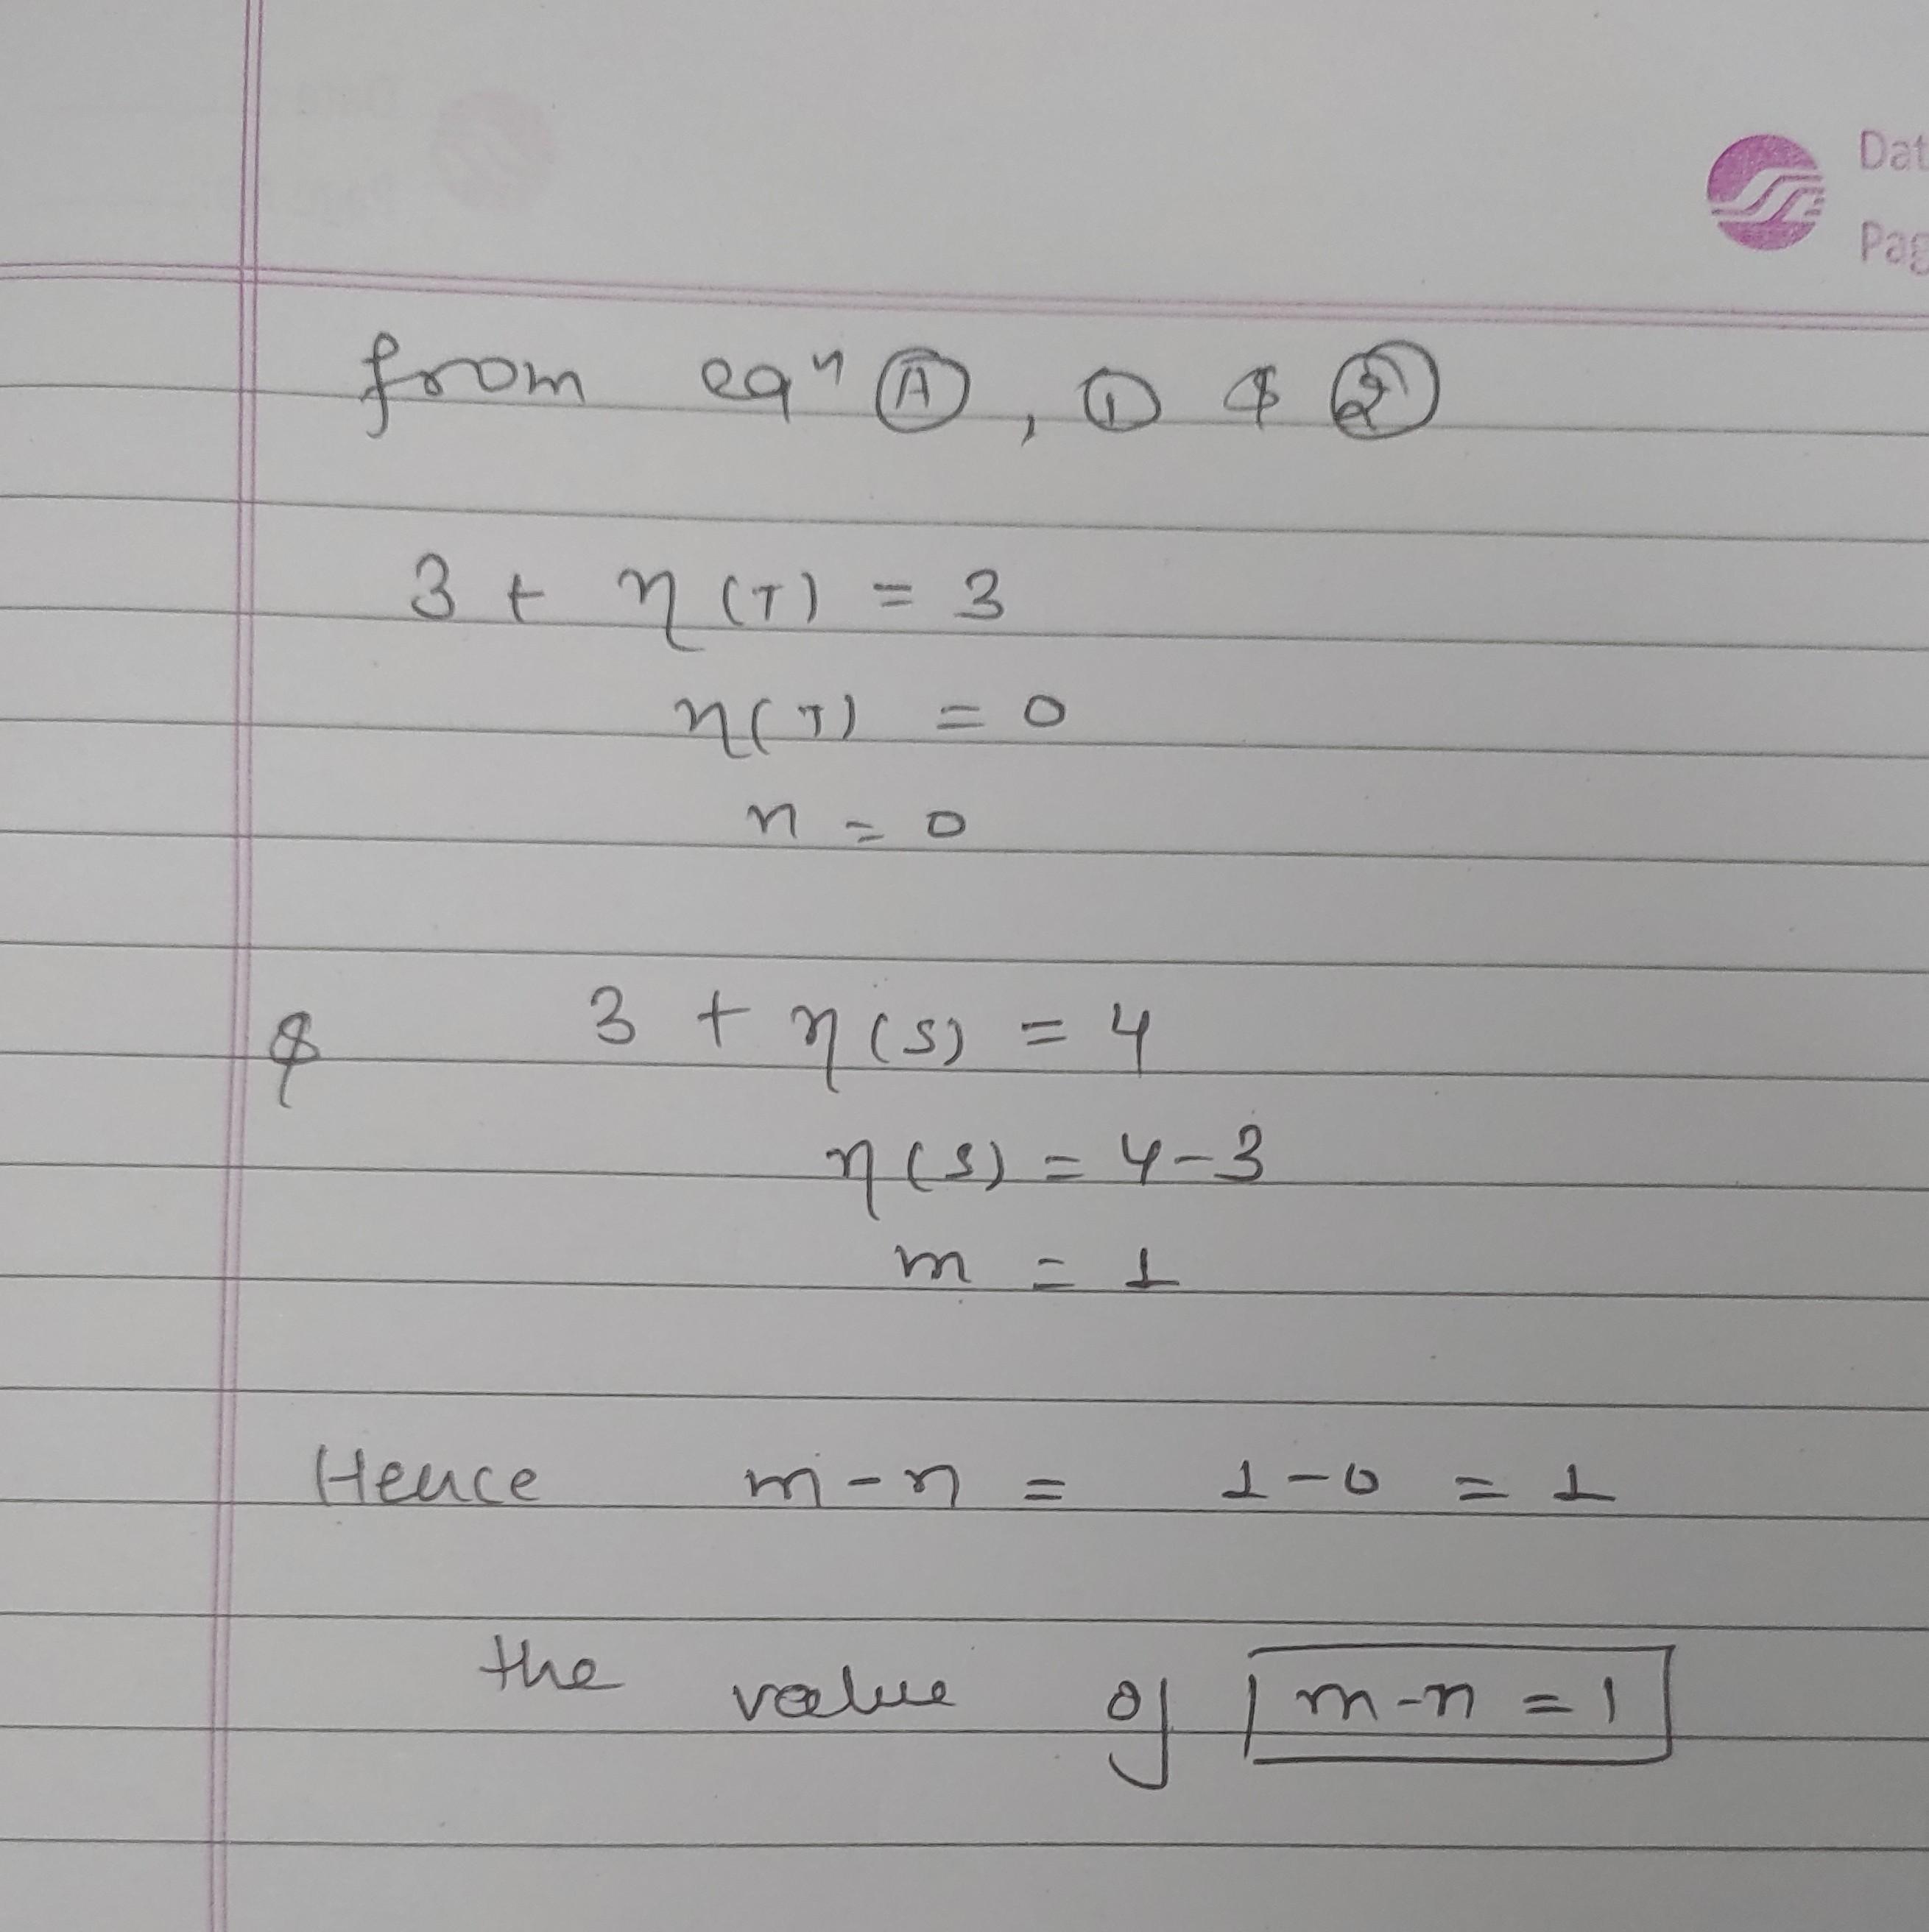 Dat
Pag
from eqⁿ Ⓐ, ① & ②
3 + η(T) = 3
η(T) = 0
n = 0
& 3 + η(S) = 4
η(S) = 4-3
m = 1
Hence m-n = 1-0 = 1
the value of m-n = 1